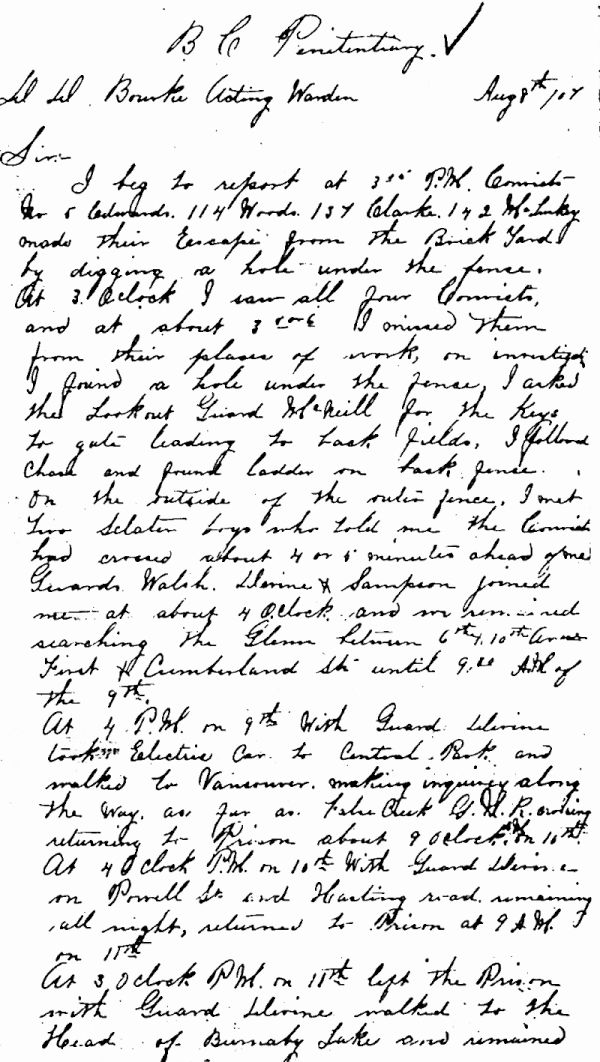 B C Penitentiary.
Bourke Acting Warden Aug 8th /07
Sir:-
I beg to report at 3 P.M. Convicts
No 5 Edwards. 114 Woods. 137 Clarke. 142 McLuky
made their Escape from the Brick Yard
by digging a hole under the fense.
At 3. Oclock I saw all four Convicts,
and at about 3 I missed them
from their places of work, on
I found a hole under the fense, I asked
the Lookout Guard McNeill for the Keys
to gate leading to back fields, I followed
Chase and found ladder on back fense.
On the outside of the outer fence, I met
two boys who told me the Convicts
had crossed about 4 or 5 minutes ahead of me
Guards Walsh. Devine & Sampson joined
me at about 4 Oclock and we remained
searching the Glenn between 6th & 10th Avenues
First & Cumberland Sts until 9.00 AM of
the 9th.
At 4 P.M. on 9th With Guard Devine
took Electric Car to Central Park and
walked to Vancouver. making inquirey along
the way, as far as False Creek G. N. R. crossing
returning to Prison about 9 Oclock AM on 10th.
At 4 Oclock P.M. on 10th With Guard Devine
on Powell St and Hasting road remaining
all night, returned to Prison at 9 A.M.
on 11th
At 3 Oclock P.M. on 11th left the Prison
with Guard Devine walked to the
Head of Burnaby Lake and remained